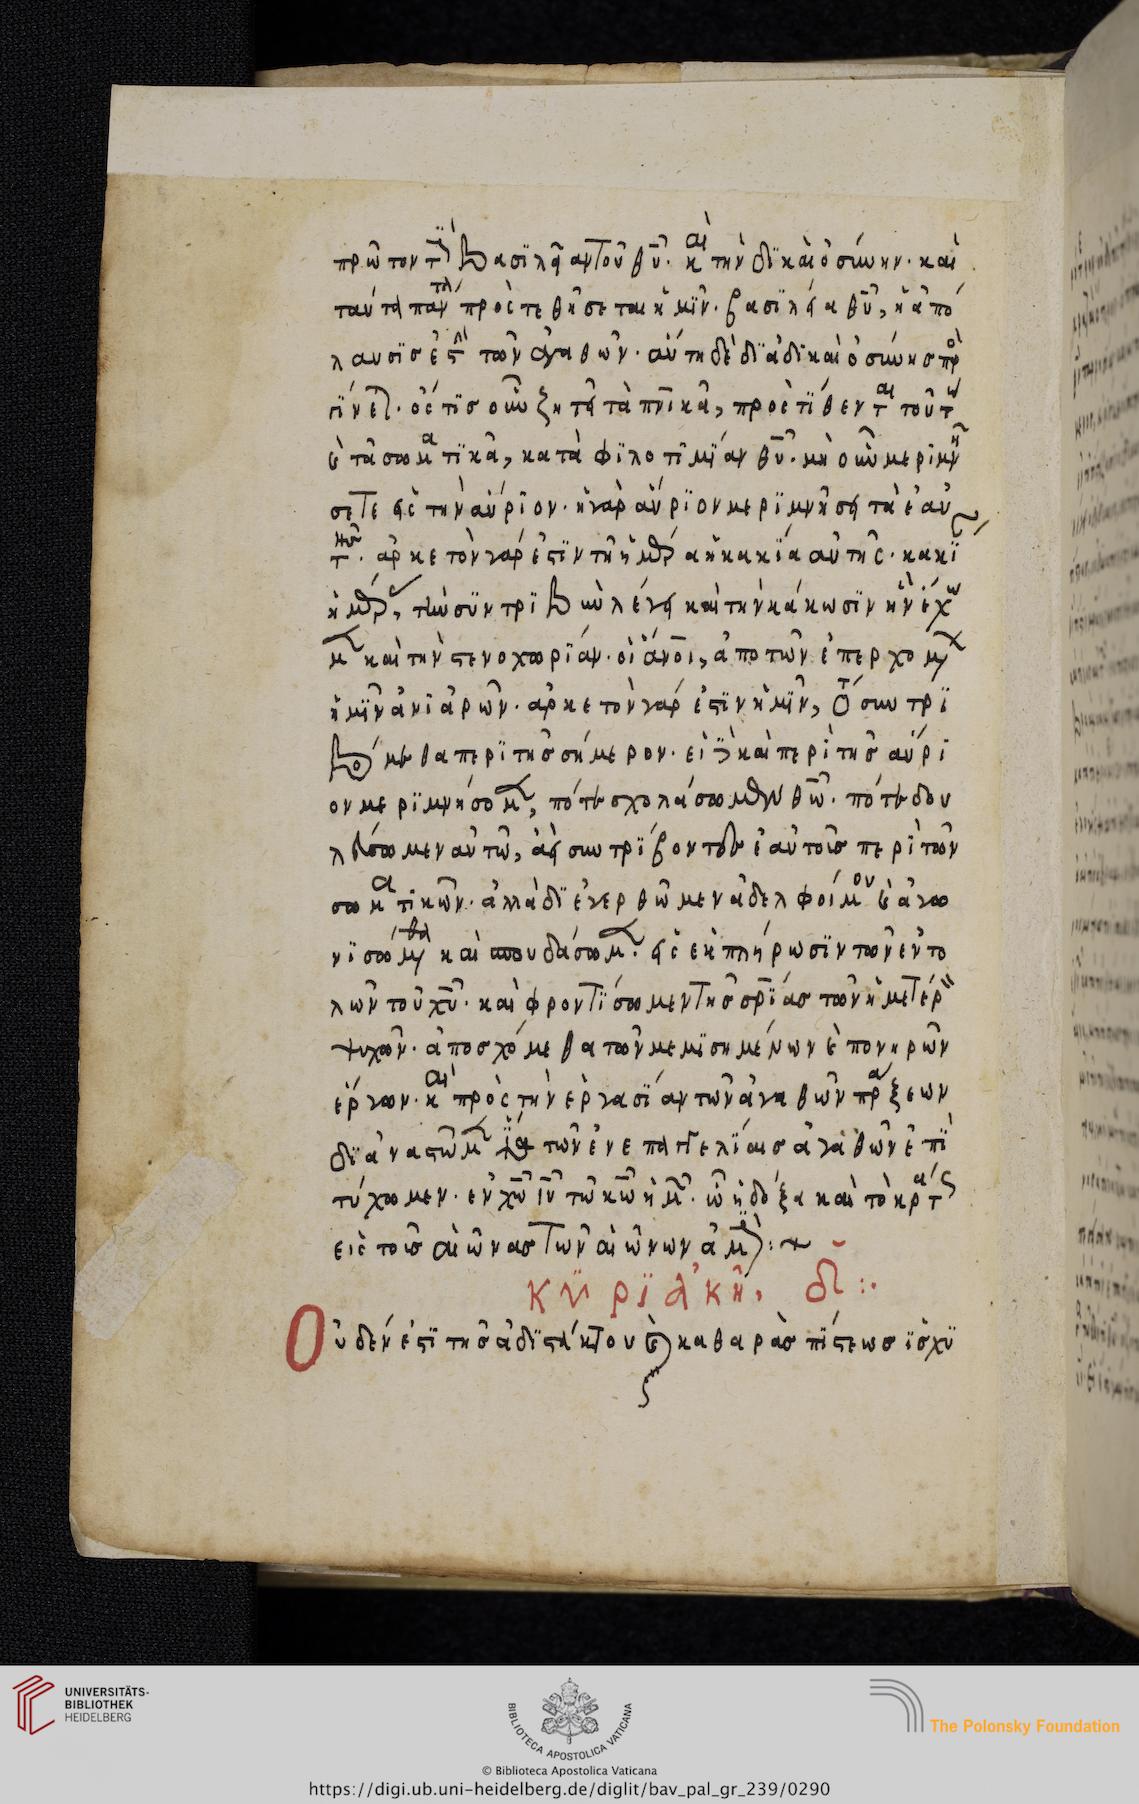 πρῶτον τὴν βασιλείαν τοῦ θῦ. καὶ τὴν δικαιοσύνην. καὶ
ταῦτα πάντα προστεθήσεται ἡμῖν. βασιλεία θῦ, ἡ ἀπό
λαυσις ἐστὶ τῶν ἀγαθῶν. αὕτη δὲ διὰ δικαιοσύνης προ
γίνε. ὅστις οὖν ζητεῖ τὰ πνικὰ, προστίθενται τούτω
τὰ σωματικὰ, κατὰ φιλοτιμίαν θῦ. μὴ οὖν μεριμνή
σετε εἰς τὴν αὔριον. ἡ γὰρ αὔριον μεριμνήσει τὰ ἑαυ
τῆς. ἀρκετὸν γάρ ἐστιν τῇ ἡμέρα ἡ κακία αὐτῆς. κακί
ἡμέρας, τὴν συντριβὴν λέγει καὶ τὴν κάκωσιν ἣν ἔχο
μεν καὶ τὴν στενοχωρίαν. οἱ ἄνοι, ἀπὸ τῶν ἐπερχομένων
ἡμῖν ἀνιαρῶν. ἀρκετὸν γάρ ἐστιν ἡμῖν, τὸ συντρί
βόμεθα περὶ τῆς σήμερον. εἰ δὲ καὶ περὶ τῆς αὔρι
ον μεριμνήσομεν, πότε σχολάσωμεν θῶ. πότε δου
λεύσωμεν αὐτῶ, ἀεὶ συντρίβοντες ἑαυτοὺς περὶ τῶν
σωματικῶν. ἀλλὰ διεγερθῶμεν ἀδελφοί μου ἀγω
νισώμεθα καὶ σπουδάσωμεν. εἰς ἐκπλήρωσιν τῶν ἐντο
λῶν τοῦ χῦ. καὶ φροντίσωμεν τῆς σρίας τῶν ἡμετέρων
ψυχῶν. ἀποσχόμεθα τῶν μεμισημένων πονηρῶν
ἔργων. καὶ πρὸς τὴν ἐργασίαν τῶν ἀγαθῶν πράξεων
διαναστῶμεν ἵνα τῶν ἐν ἐπαγγελίαις ἀγαθῶν ἐπι
τύχωμεν. ἐν χῶ ιῦ τῶ κῶ ἡμῶν. ὧ ἡ δόξα καὶ τὸ κράτος
εἰς τοὺς αἰῶνας τῶν αἰώνων ἀμήν:+
κυριακῆ, δ:.
Οὐδέν ἐστι τῆς ἀδιστάκτου καθαρᾶς πίστεως ἰσχυ
UNIVERSITÄTS-
BIBLIOTHEK
HEIDELBERG
BIBLIOTECA APOSTOLICA VATICANA
The Polonsky Foundation
© Biblioteca Apostolica Vaticana
https://digi.ub.uni-heidelberg.de/diglit/bav_pal_gr_239/0290